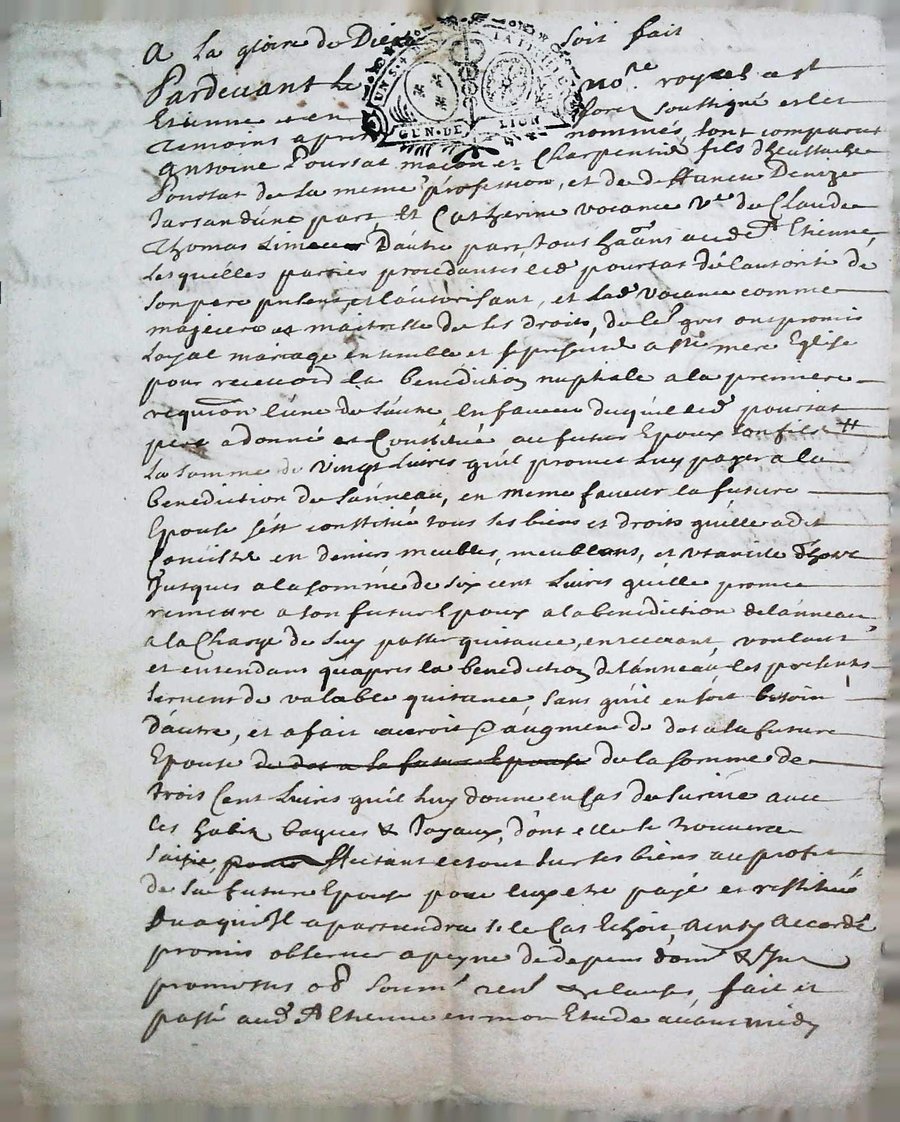 A la gloire de Dieu soit fait
UN S. 4 D. LA FEUILLE
GEN. DE LION
Pardevant le no.re royal a st
Etienne et en forez soussigné et les
temoins apres nommés, sont comparus
Antoine Poursat maçon et Charpentier fils d'heustache
Poursat de la meme profession, et de d. Denize
Jarsan d'une part Et Catherine vocance v.e de Claude
Thomas Limeur D'autre part tous ha.ans aud. st Etienne
Lesquelles parties procedantes led. poursat de l'autorité de
son pere present, et l'autorisant, et lad. vocance comme
majeure et maitresse de ses droits, de leur gré ont promis
Loyal mariage ensemble et se presenter a n.re mere Eglise
pour recevoir la benediction nuptiale a la premiere
requi.on l'une de l'autre, en faveur duquel led. poursat
pere a donné et Constitué au futur Epoux son fils
La somme de vingt Livres qu'il promet luy payer a la
benediction de l'anneau, en meme faveur la future
Epouse s'est constituée tous ses biens et droits qu'elle a dit
Consister en deniers meubles, meublans, et
Jusques a la somme de six cent Livres qu'elle promet
remettre a son futur Epoux a la benediction de l'anneau,
a la Charge de luy passer quitance, en recevant, voulant
et entendans qu'apres la benediction de l'anneau, les presentes
servent de valable quitance, sans qu'il en soit besoin
d'autre, et a fait accroit et augment de dot a la future
Epouse de dot a la future Epouse de la somme de
trois Cent Livres qu'il luy donne en cas de survie avec
ses habits bagues & Joyaux, dont elle se trouvera
saisie assurant le tout sur ses biens au profit
de sa future Epouse pour luy etre payé et restitué
ou a qui il apartiendra si le Cas Echoit, Ainsy Accordé
promis observer a peyne de depens dom. & Int
promettes ob. soum. ren. & clauses fait et
passé aud. st Etienne en mon Etude avant midy